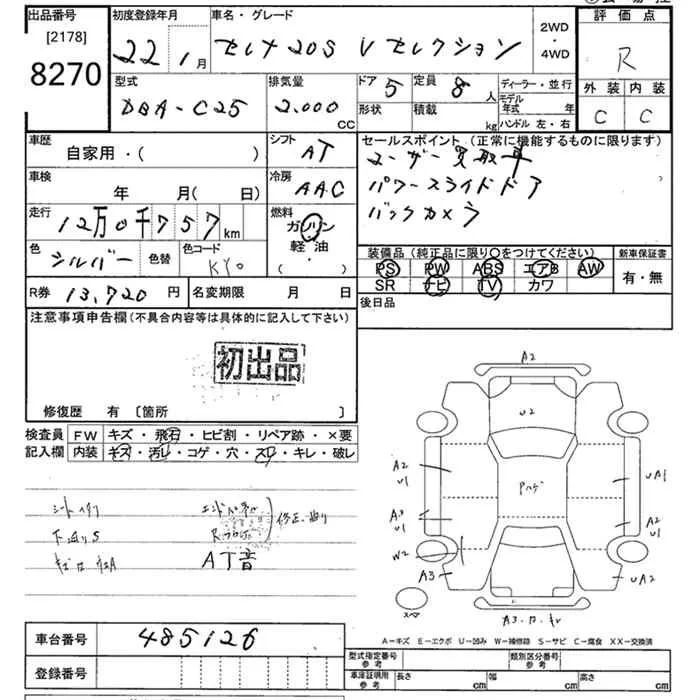 出品番号 初度登録年月 車名・グレード 2WD・4WD 評価点
[2178]
8270
22 1月 セレナ20S Vセレクション R
型式 排気量 ドア 定員 ディーラー・並行 外装 内装
DBA-C25 2,000 CC 5 8人 モデル年式 年 C C
形状 積載 kg ハンドル 左・右
車歴 シフト セールスポイント (正常に機能するものに限ります)
自家用・( ) AT ユーザー買取車
車検 冷房 パワースライドドア
年 月( 日) AAC バックカメラ
走行 燃料
12万0千757km ガソリン
軽油
・
色 色替 色コード 装備品 (純正品に限り○をつけてください) 新車保証書
シルバー KY0 PS PW ABS エアB AW 有・無
SR ナビ TV カワ
R券 13,720円 名変期限 月 日 後日品
注意事項申告欄(不具合内容等は具体的に記入して下さい)
初出品
修復歴 有 〔箇所 〕
検査員 FW キズ・飛石・ヒビ割・リペア跡・×要
記入欄 内装 キズ・汚レ・コゲ・穴・スレ・キレ・破レ
シートヘタリ
下廻りS
AT音
A2
U2
A2
U1
UA1
A3
U1
A2
U1
W2
A3
UA2
スペア
A－キズ E－エクボ U－凹み W－補修跡 S－サビ C－腐食 XX－交換済
車台番号 485126
登録番号
型式指定番号 参考 類別区分番号 参考
車庫証明用 参考 長さ cm 幅 cm 高さ cm